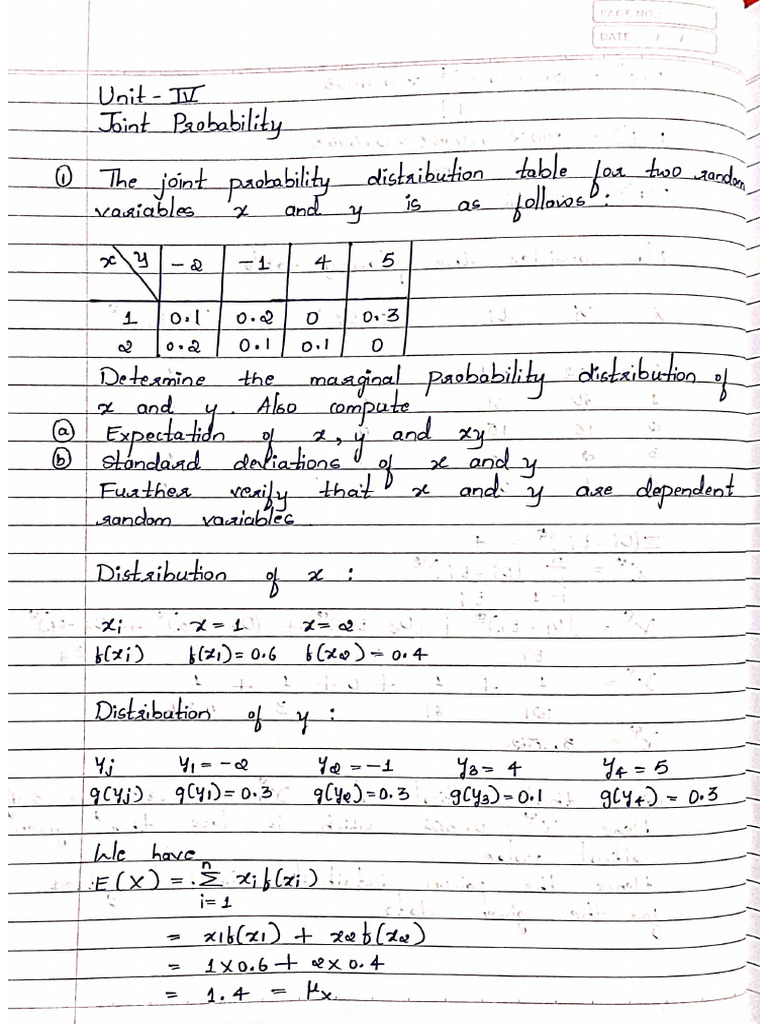 PAGE NO.:
DATE / /
Unit - IV
Joint Probability
① The joint probability distribution table for two random
variables x and y is as follows:
x y -2 -1 4 5
1 0.1 0.2 0 0.3
2 0.2 0.1 0.1 0
Determine the marginal probability distribution of
x and y. Also compute
ⓐ Expectation of x, y and xy
ⓑ Standard deviations of x and y
Further verify that x and y are dependent
random variables
Distribution of x :
xi x = 1 x = 2
f(xi) f(x1) = 0.6 f(x2) = 0.4
Distribution of y :
yj y1 = -2 y2 = -1 y3 = 4 y4 = 5
g(yj) g(y1) = 0.3 g(y2) = 0.3 g(y3) = 0.1 g(y4) = 0.3
We have
E(X) = n Σ i=1 xi f(xi)
= x1f(x1) + x2f(x2)
= 1 × 0.6 + 2 × 0.4
= 1.4 = μx